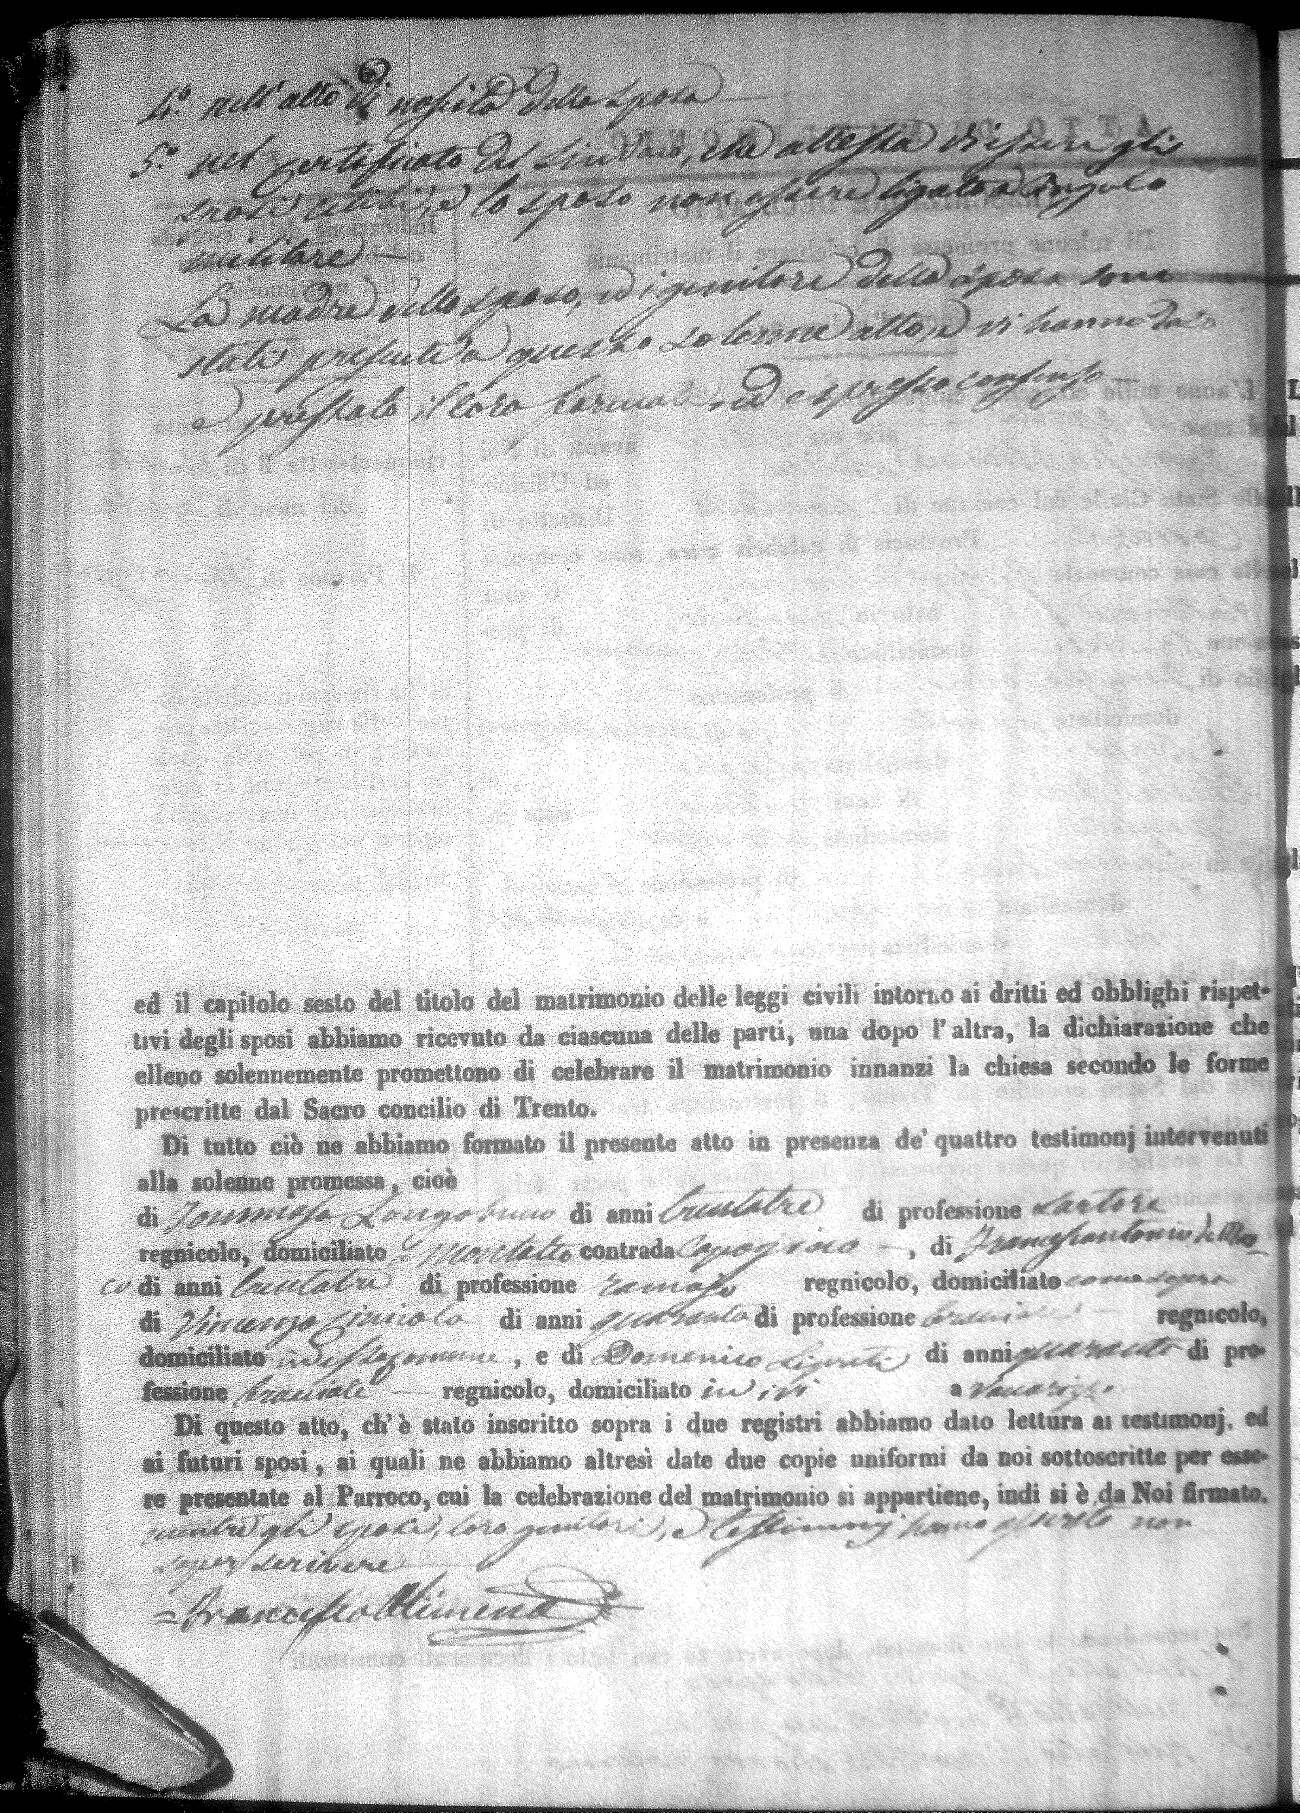 4.° nell'atto di nascita della sposa
5.° nel certificato del Sindaco, che attesta di essere gli
sposi celibi, e lo sposo non essere ligato a vingolo
militare
La madre dello sposo, ed i genitori della sposa sono
stati presenti a questo solenne atto, e vi hanno dato
e prestato il loro formale, ed espresso consenso
ed il capitolo sesto del titolo del matrimonio delle leggi civili intorno ai dritti ed obblighi rispet-
tivi degli sposi abbiamo ricevuto da ciascuna delle parti, una dopo l'altra, la dichiarazione che
elleno solennemente promettono di celebrare il matrimonio innanzi la chiesa secondo le forme
prescritte dal Sacro concilio di Trento.
Di tutto ciò ne abbiamo formato il presente atto in presenza de' quattro testimonj intervenuti
alla solenne promessa, cioè
di Tommaso Longobucco di anni trentatre di professione sartore
regnicolo, domiciliato contrada, di Francantonio de Mar-
co di anni trentatre di professione regnicolo, domiciliato come sopra
di Vincenzo di anni quaranta di professione bracciale regnicolo,
domiciliato in detto comune, e di Domenico di anni quaranta di pro-
fessione bracciale regnicolo, domiciliato in ivi a
Di questo atto, ch'è stato inscritto sopra i due registri abbiamo dato lettura ai testimonj. ed
ai futuri sposi, ai quali ne abbiamo altresì date due copie uniformi da noi sottoscritte per esse-
re presentate al Parroco, cui la celebrazione del matrimonio si appartiene, indi si è da Noi firmato.
mentre gli sposi, loro genitori, e testimonj hanno asserito non
saper scrivere
= Francesco Mimena